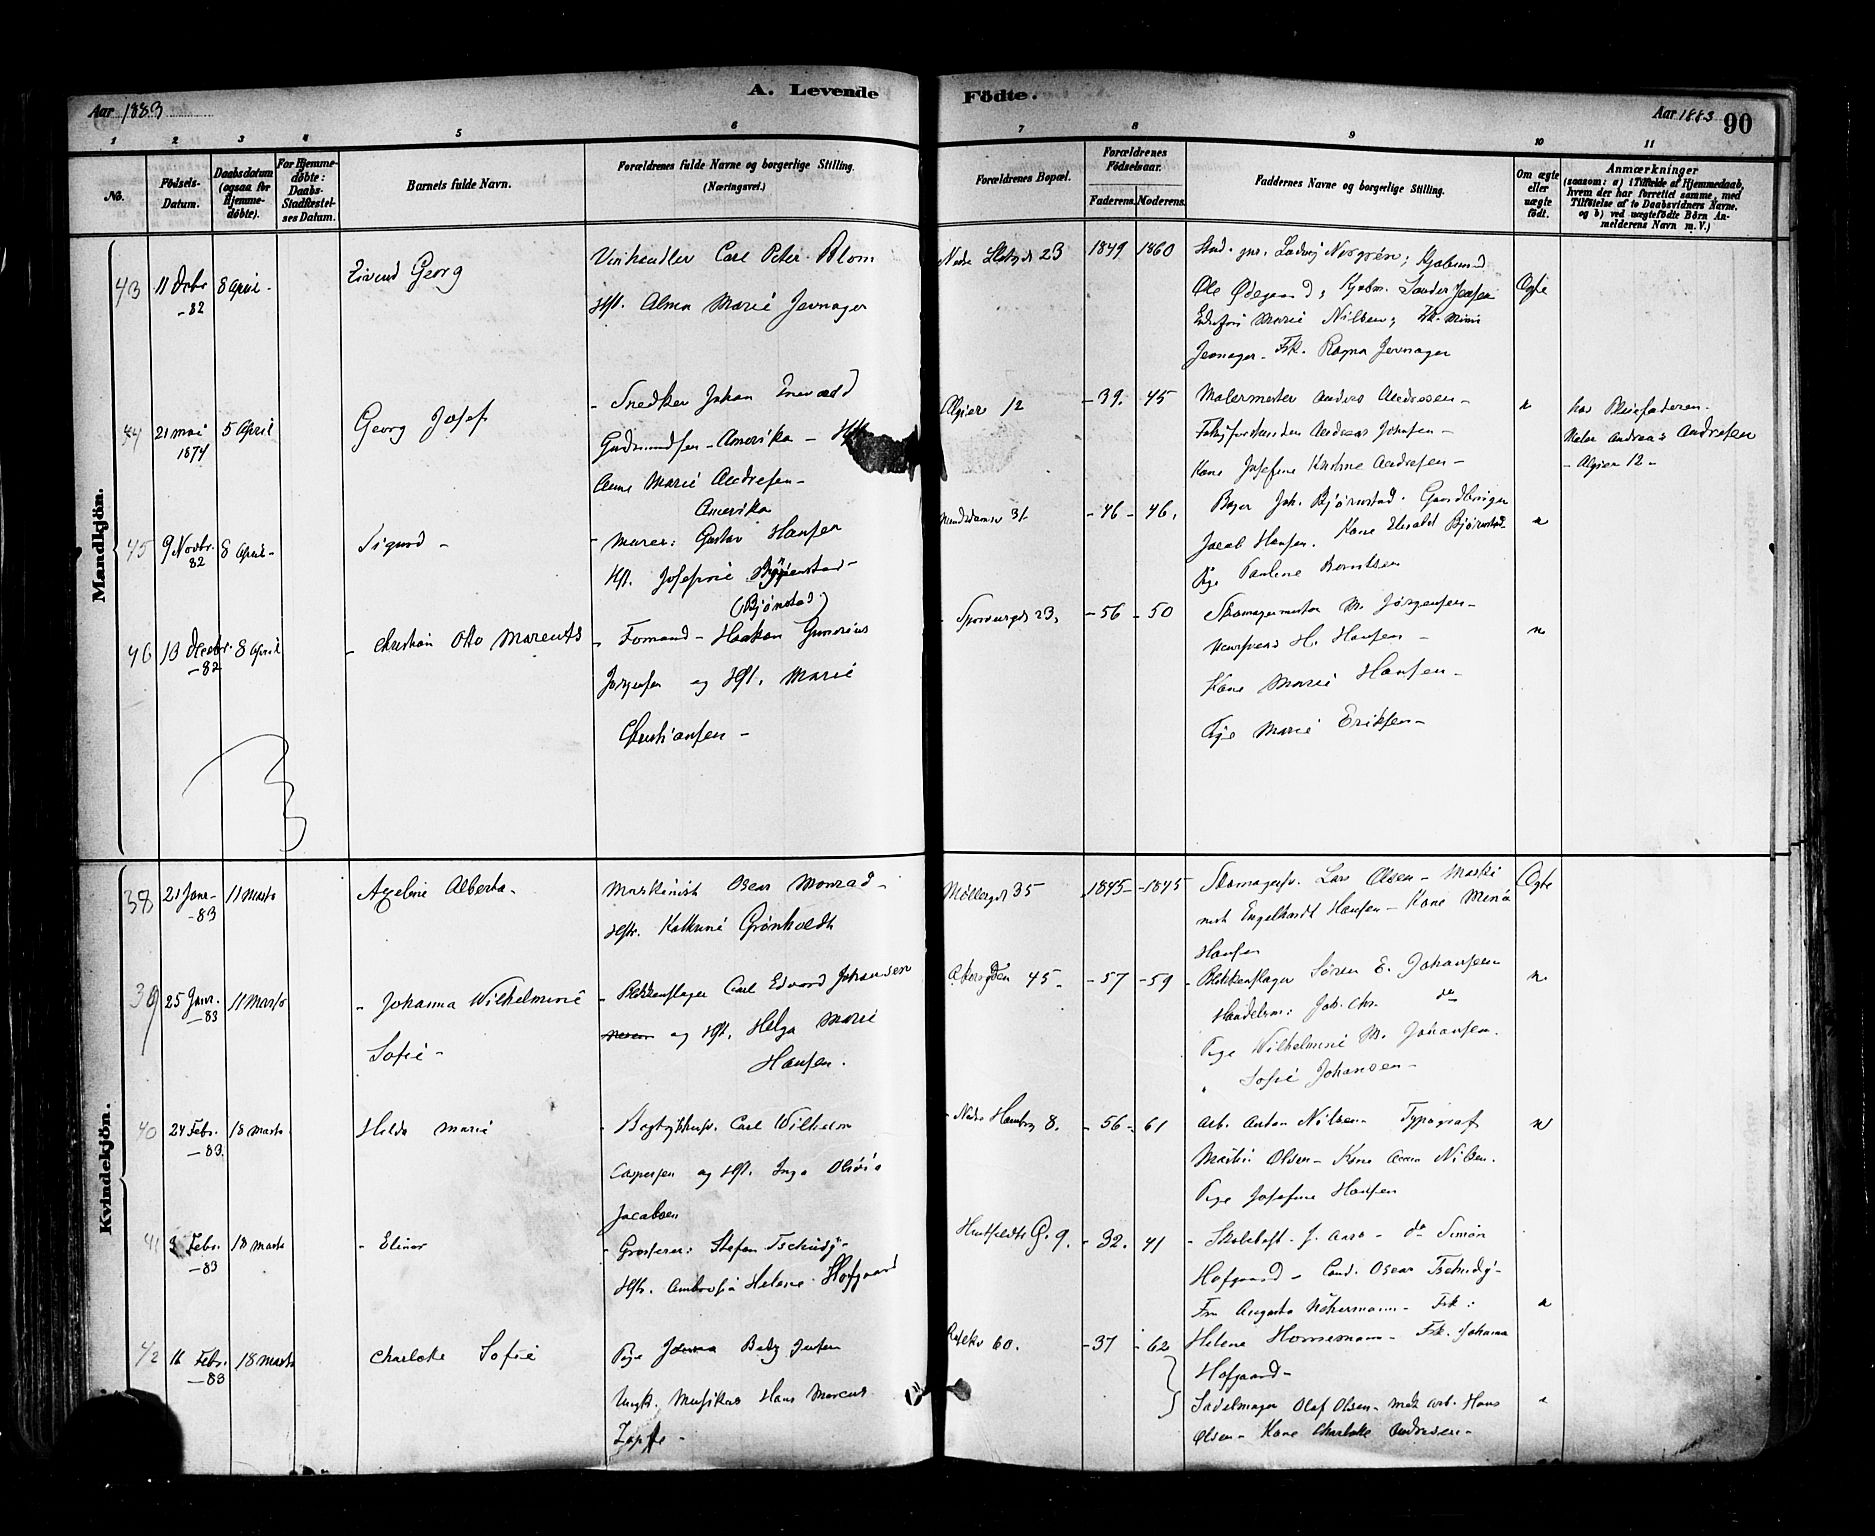 Aar 1883
A. Levende Födte.
Aar 1883 90
1 2 3 4 5 6 7 8 9 10 11
No.
Födsels-Datum.
Daabsdatum (ogsaa for Hjemme-døbte).
For Hjemme-døbte: Daabs-Stadfæstel-ses Datum.
Barnets fulde Navn.
Forældrenes fulde Navne og borgerlige Stilling. (Næringsvei.)
Forældrenes Bopæl.
Forældrenes Födselsaar.
Faderens. Moderens.
Faddernes Navne og borgerlige Stilling.
Om ægte eller uægte födt.
Anmærkninger
(saasom: a) i Tilfælde af Hjemmedaab,
hvem der har forrettet samme, med
Tilföielse af to Daabsvidners Navne.
og b) ved uægtefödte Börn An-
melderens Navn m. V.)
Mandkjön.
43 11 Debr -82 8 April - Eivind Georg
Vinhandler Carl Peter Blom
Hst. Alma Marie Jevnager
Nedre Slotsgd 23 1849 1860
Stud. Ludvig Norgren; Kjøbmd
Ole Ødegaard; Kjøbm. Sander Jensen
Marie Nilsen; Frk. Mimi
Jevnager - Frk. Ragna Jevnager
Ægte
44 21 mai 1874 5 April Georg Josef
- Snedker Johan Enevald
Gudmundsen - Amerika - Hst
Anne Marie Andresen -
Amerika
Algier 12 - 39. 45
Malermester Anders Andresen -
Andreas Johnsen -
Kone Josefine Kristine Andresen -
hos Pleiefaderen.
Maler Andreas Andresen
- Algier 12 -
45 9 Novbr. 82 8 April - Sigurd -
- Gustav Hansen
Hst. Josefine
(Bjønstad)
31 - 46 - 46.
Bager Joh. Bjørnstad. Gaardbruger
Jacob Hansen. Kone Bjørnstad
Pige Pauline Berntsen
46 13 Decbr. -82 8 April - Christian Otto Marents
- Formand - Haakon Gunerius
Jørgensen og Hst. Marie
Christiansen -
23, - 56 - 50
Skomagermester M. Jørgensen -
H. Hansen -
Kone Marie Hansen -
Pige Marie Eriksen -
Kvindekjön.
38 21 Janr - 83 11 Marts Axeline Alberta -
Maskinist Oscar Monrad -
Hstr. Kathrine Grønholdt
Møllergd 35 1845 - 1845
Skomagersv. Lars Olsen - Maski
nist Engelhardt Hansen - Kone Mina
Hansen
Ægte
39 25 Janr. -83 11 Marts - Johanna Wilhelmine
Sofie -
- Blikkenslager Carl Edvard Johansen
og Hst. Helga Marie
Hansen.
45 - - 57 - 59
- Blikkenslager Søren E. Johansen
Handelsm: Joh. Chr. do
Pige Wilhelmine M. Johansen.
" Sofie Johansen -
40 24 Febr. -83. 18 Marts Hilda Marie
- Bogtykkersv. Carl Wilhelm
Caspersen og Hst. Inga Olivia
Jacobsen
8. - 56 - 61
Arb. Anton Nilsen - Typograf
Martin Olsen - Kone Anna Nilsen.
Pige Josefine Hansen
41 3 Febr. -83 18 Marts - Elinor
- Grosserer: Stefan Tschudy -
Hstr. Ambrosia Helene Hofgaard
G. 9. - 32. 41
- Skolebest. J. Aars - do Simon
Hofgaard - Cand. Oscar Tschudy -
Fru Augusta - Frk:
Helene Hornemann - Frk. Johanna
Hofgaard -
42 16 Febr. -83 18 Marts Charlotte Sofie
Pige Jensen
Ungk. Musikus Hans Marcus
Zapffe -
60. - 37 - 62
Sadelmager Olaf Olsen - Arb. Hans
Olsen - Kone Charlotte Andresen -